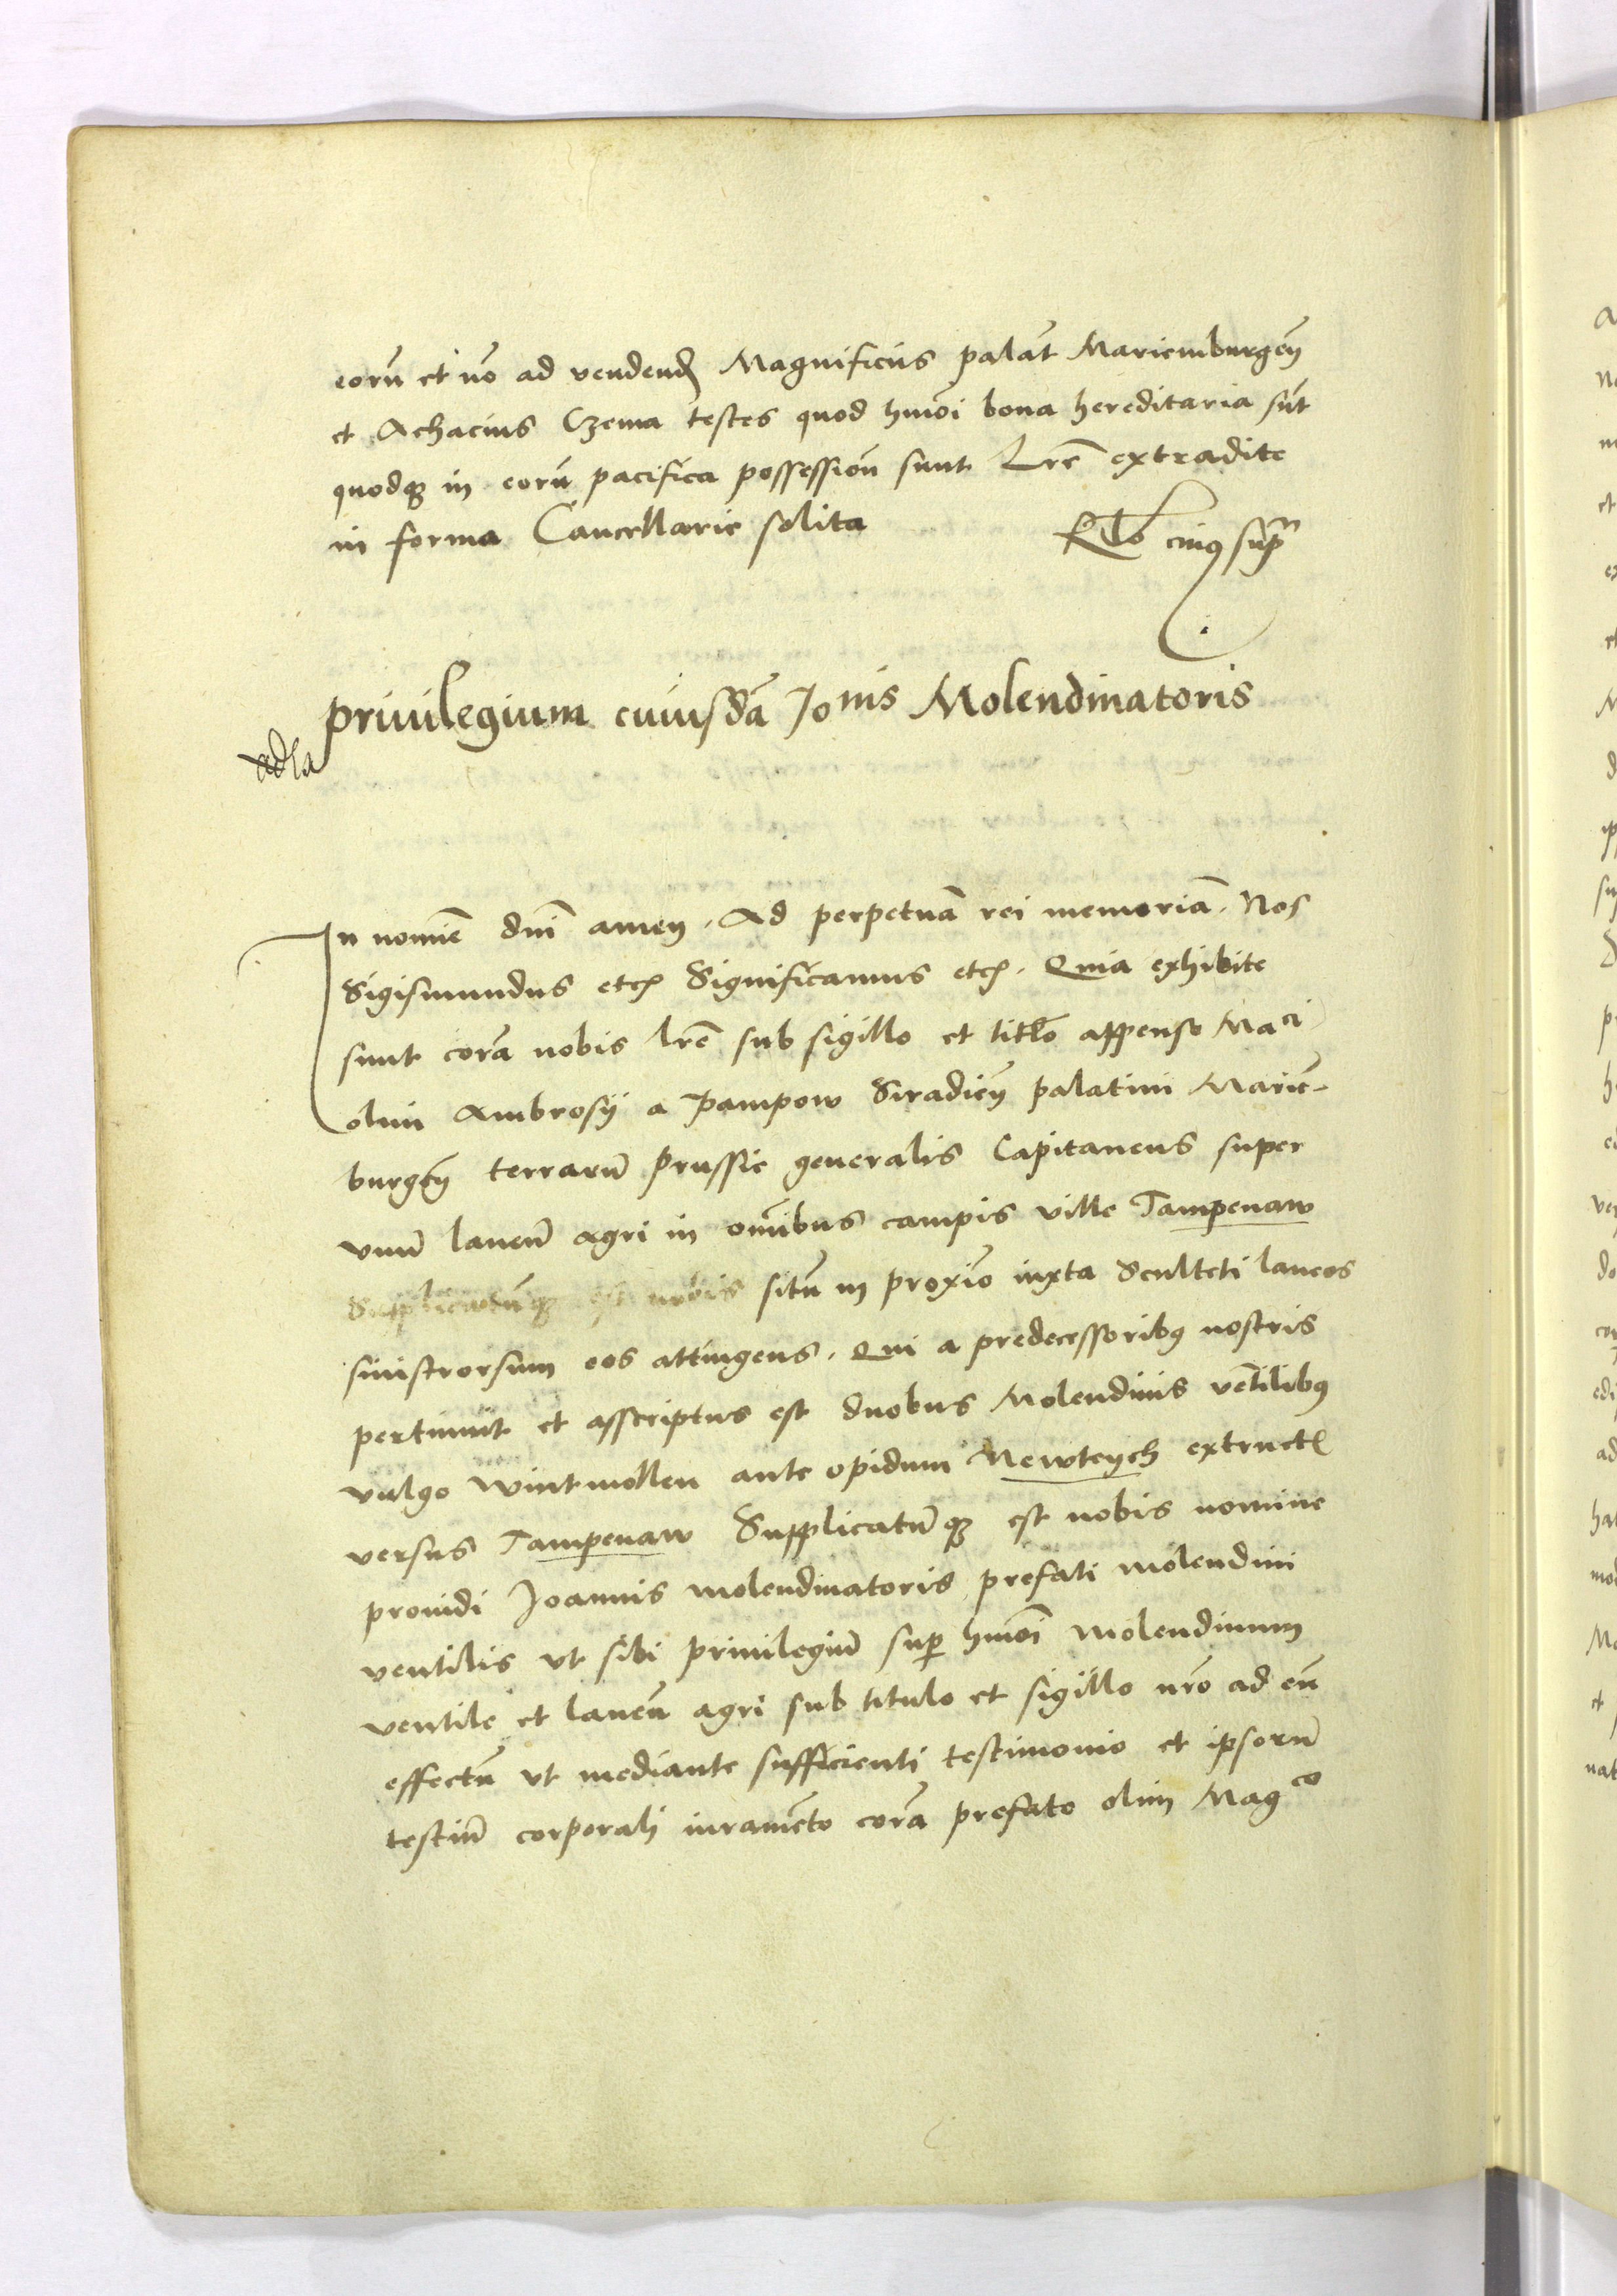 eorū et nō ad vendend Magnificus palat̄ Mariemburgen̄
et Achacius Czema testes quod hmōi bona hereditaria sūt
quodqȝ in eorū pacifica possession̄ sunt Lrē extradite
in forma Cancellarie solita
Rlō eiusꝯ supr
privilegium cuiusdā Joōnis Molendinatoris
In nomīe dnī amen. Ad perpetuā rei memoriā. Nos
Sigismundus etc̄ Significamus etc̄. Quia exhibite
sunt corā nobis lrē sub sigillo et titlo appenso Maci
olim Ambrosij a Pampow Siradien̄ palatini Mariē-
burgen̄ terrarū Prussie generalis Capitaneus super
vnū laneū agri in oībus campis ville Tampenaw
Supplicatūqȝ est nobis sitū in proxīo iuxta Sculteti laneos
sinistrorsum eos attingens. Qui a predecessoribꝯ nostris
pertinuit et asscriptus est duobus Molendinis vētilibꝯ
vulgo wintmollen ante opidum Newteych extruct
versus Tampenaw Supplicatūqȝ est nobis nomine
prouidi Joannis molendinatoris prefati molendini
ventilis vt sibi priuilegiū sup̄ hmōi molendinum
ventile et laneū agri sub titulo et sigillo nrō ad eū
effectū vt mediante sufficienti testimonio et ipsorū
testiū corporali iuramēto corā prefato olim Magco